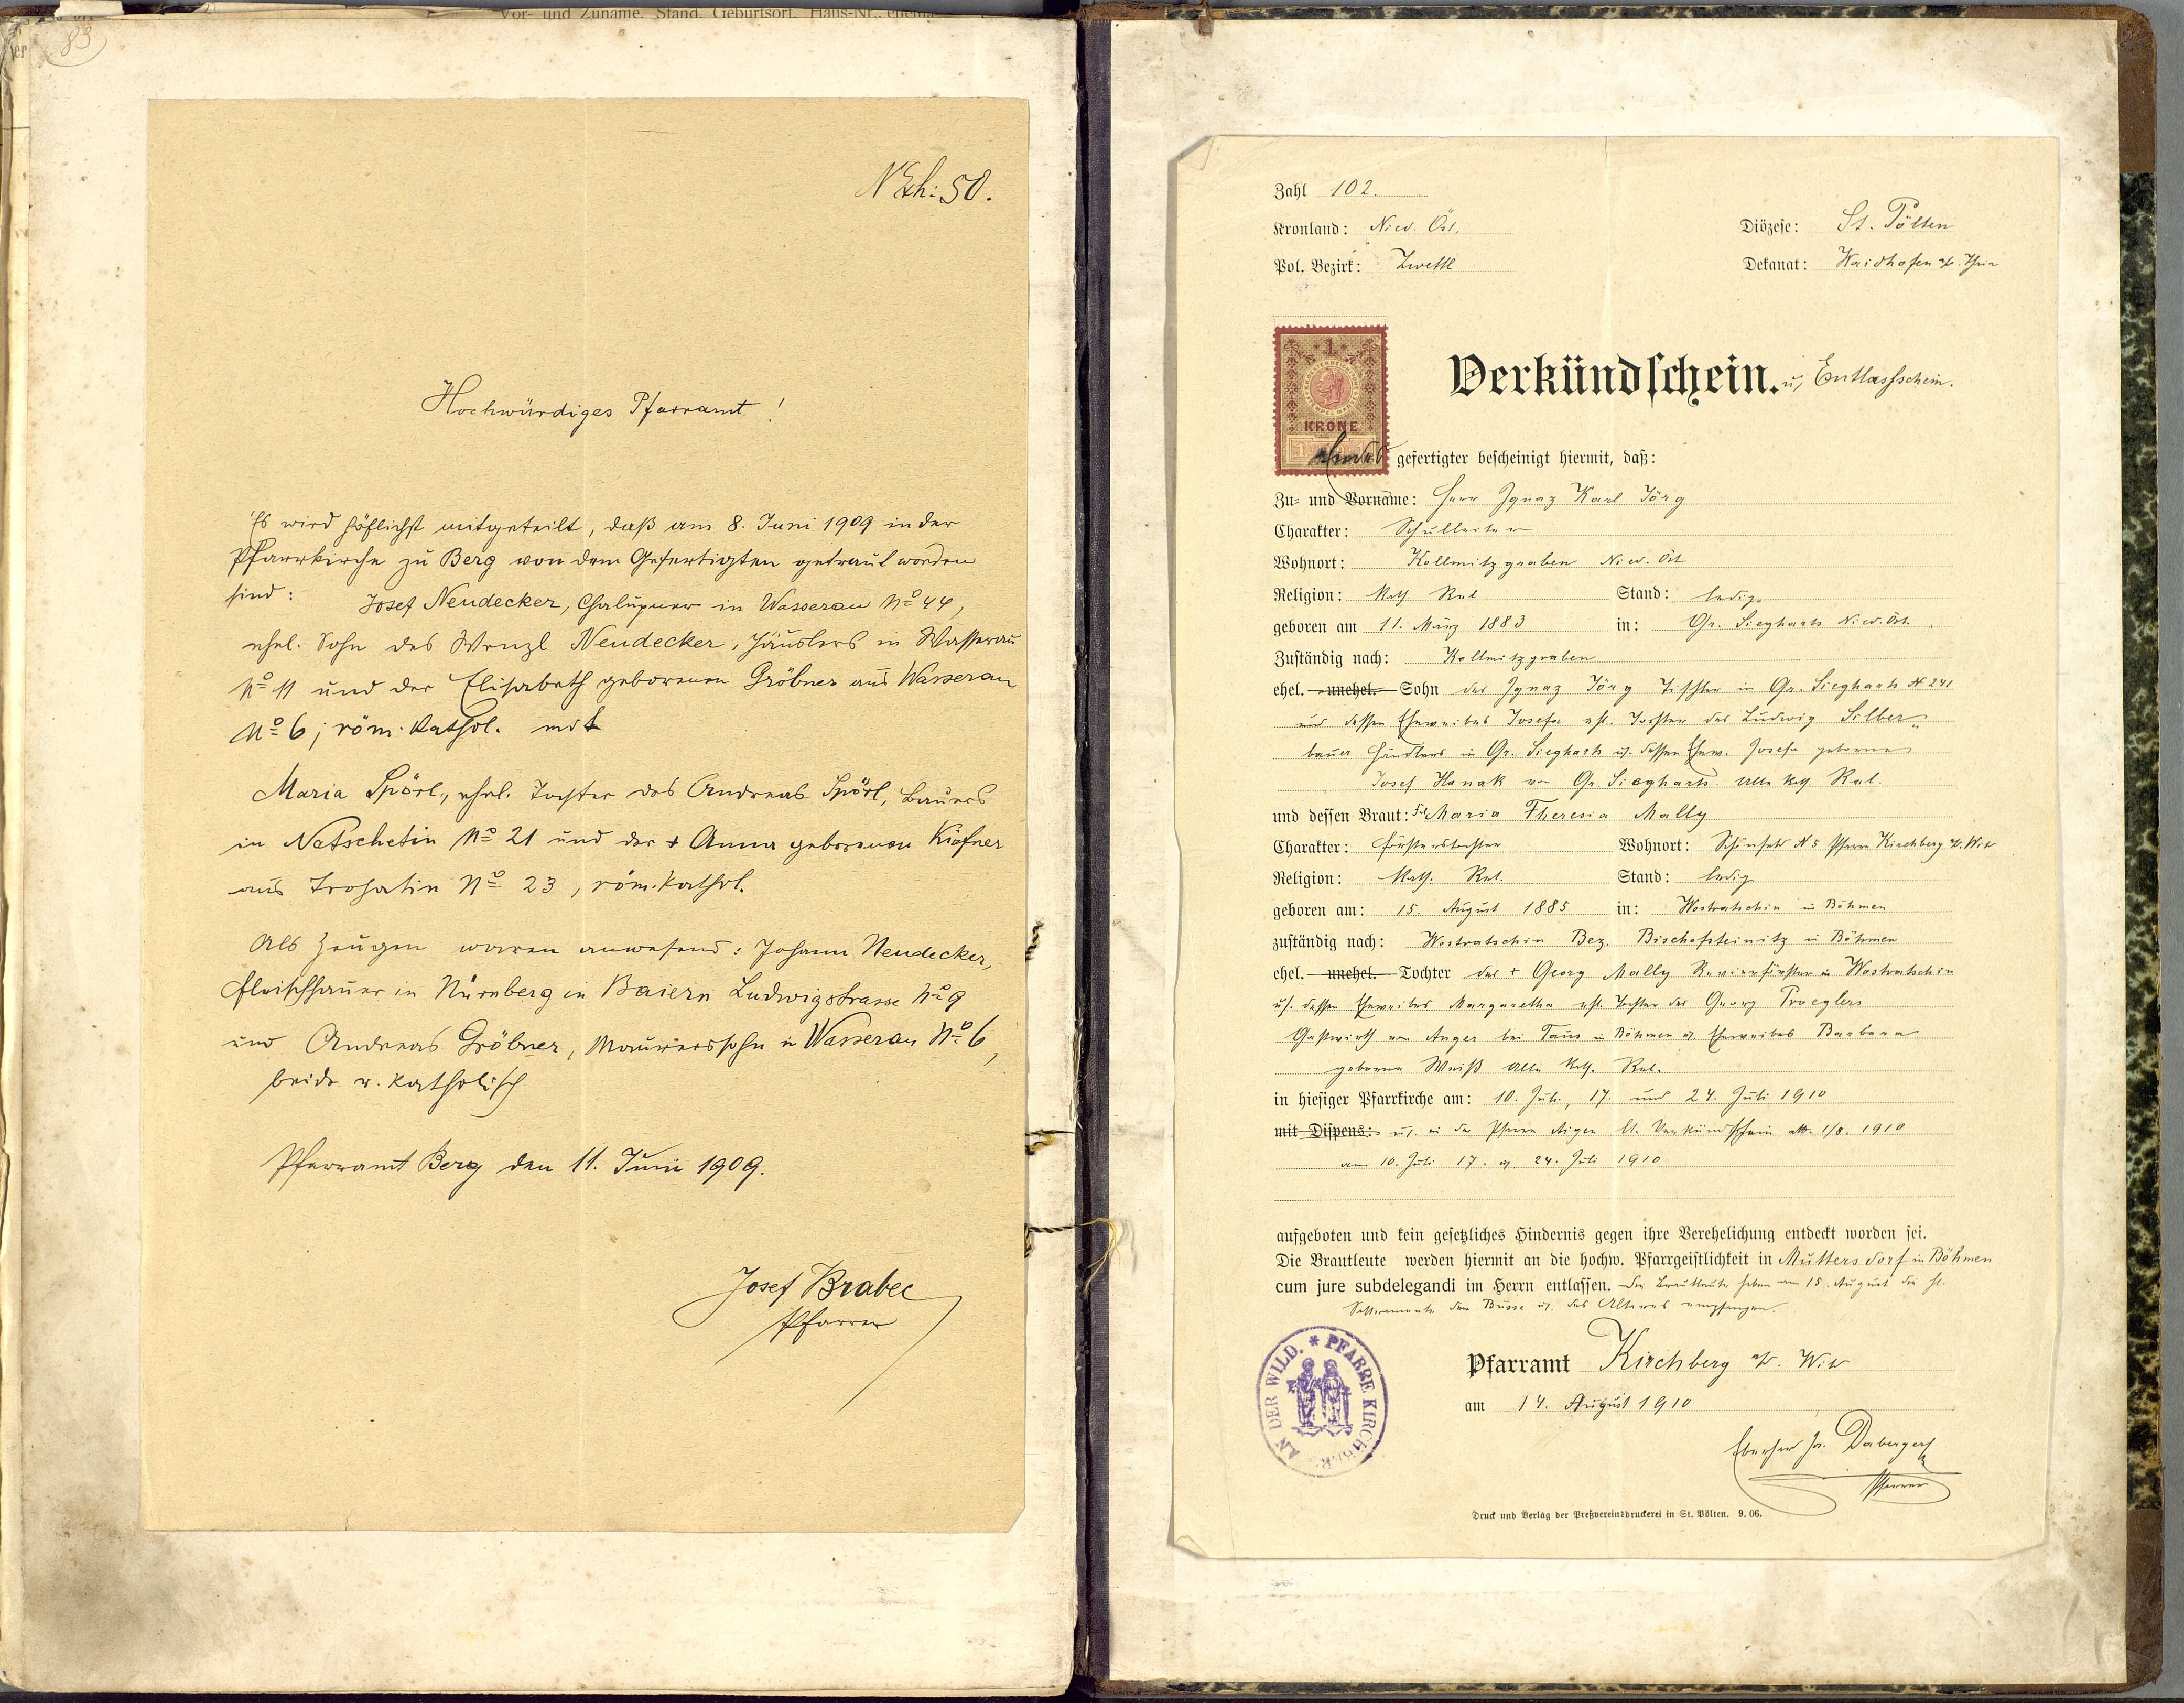 Vor- und Zuname, Stand, Geburtsort, Haus-Nr.,
83
N Exh: 50.
Hochwürdiges Pfarramt!
Es wird höflichst mitgeteilt, daß am 8. Juni 1909 in der
Pfarrkirche zu Berg von dem Gefertigten getraut worden
sind: Josef Neudecker, Chalupner in Wasserau No 44,
ehel. Sohn des Wenzl Neudecker, Häuslers in Wasserau
No 11 und der Elisabeth geborenen Gröbner aus Wasserau
No 6; röm. kathol. mit
Maria Spörl, ehel. Tochter des Andreas Spörl, Bauers
in Natschetin No 21 und der + Anna geborenen Kiefner
aus Trohatin No 23, röm. kathol.
Als Zeugen waren anwesend: Johann Neudecker,
Fleischhauer in Nürnberg in Baiern Ludwigstrasse No 9
und Andreas Gröbner, Maurerssohn in Wasserau No 6,
beide r. katholisch
Pfarramt Berg den 11. Juni 1909.
Josef Brabec
Pfarrer
Zahl 102.
Kronland: Nied. Öst.
Diözese: St. Pölten
Pol. Bezirk: Zwettl
Dekanat: Waidhofen a/d. Thaia
1
KRONE
Verkündschein. u. Entlassschein.
Endes gefertigter bescheinigt hiermit, daß:
Zu- und Vorname: Herr Ignaz Karl Jörg
Charakter: Schulleiter
Wohnort: Kollmitzgraben Nied. Öst
Religion: Kath. Rel. Stand: ledig
geboren am 11. März 1883 in: Gr. Siegharts Nied. Öst.
Zuständig nach: Kollmitzgraben
ehel. unehel. Sohn des Ignaz Jörg Tischler in Gr. Sieghart N 241
und dessen Eheweibes Josefa ehl. Tochter des Ludwig Silber-
bauer Händlers in Gr. Sieghart u. dessen Ehew. Josefa geborne
Josef Hanak von Gr. Sieghart. Alle kath. Rel.
und dessen Braut: Frl. Maria Theresia Mally
Charakter: Försterstochter Wohnort: Schönfeld N 5 Pfarre Kirchberg a/d. Wild
Religion: Kath. Rel. Stand: ledig
geboren am: 15. August 1885 in: Wostratschin in Böhmen
zuständig nach: Wostratschin Bez. Bischofteinitz in Böhmen
ehel. unehel. Tochter des + Georg Mally Revierförster in Wostratschin
u. dessen Eheweibes Margaretha ehl. Tochter des Georg Proeglers
Gastwirth von Anger bei Taus in Böhmen u. Eheweibes Barbara
geborne Weiß alle kath. Rel.
in hiesiger Pfarrkirche am: 10. Juli, 17. und 24. Juli 1910
mit Dispens: u. in der Pfarre Aigen lt. Verkündschein dtto. 1/8. 1910
am 10. Juli 17. u. 24. Juli 1910
aufgeboten und kein gesetzliches Hindernis gegen ihre Verehelichung entdeckt worden sei.
Die Brautleute werden hiermit an die hochw. Pfarrgeistlichkeit in Muttersdorf in Böhmen
cum jure subdelegandi im Herrn entlassen. Die Brautleute haben am 15. August die hl.
Sakramente der Busse u. des Altares empfangen.
PFARRE KIRCHBERG AN DER WILD.
Pfarramt Kirchberg a/d. Wild
am 14. August 1910
Pfarrer
Druck und Verlag der Preßvereinsdruckerei in St. Pölten. 9. 06.